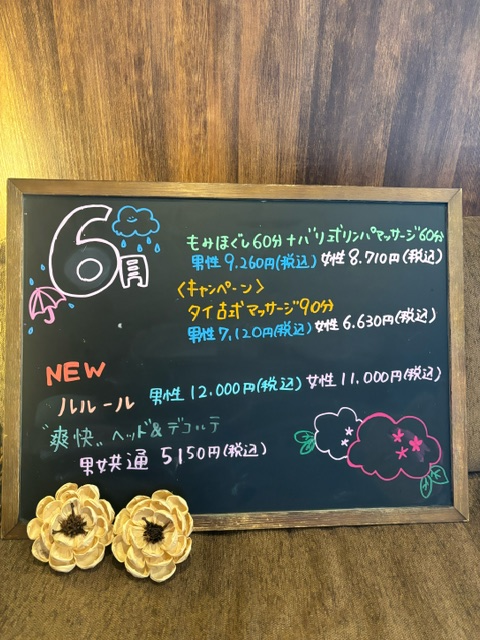 6月
もみほぐし60分+バリ式リンパマッサージ60分
男性9.260円(税込) 女性8.710円(税込)
〈キャンペーン〉
タイ古式マッサージ90分
男性7,120円(税込) 女性6.630円(税込)
NEW
ルルール 男性12.000円(税込) 女性11.000円(税込)
"爽快"ヘッド&デコルテ
男女共通 5150円(税込)